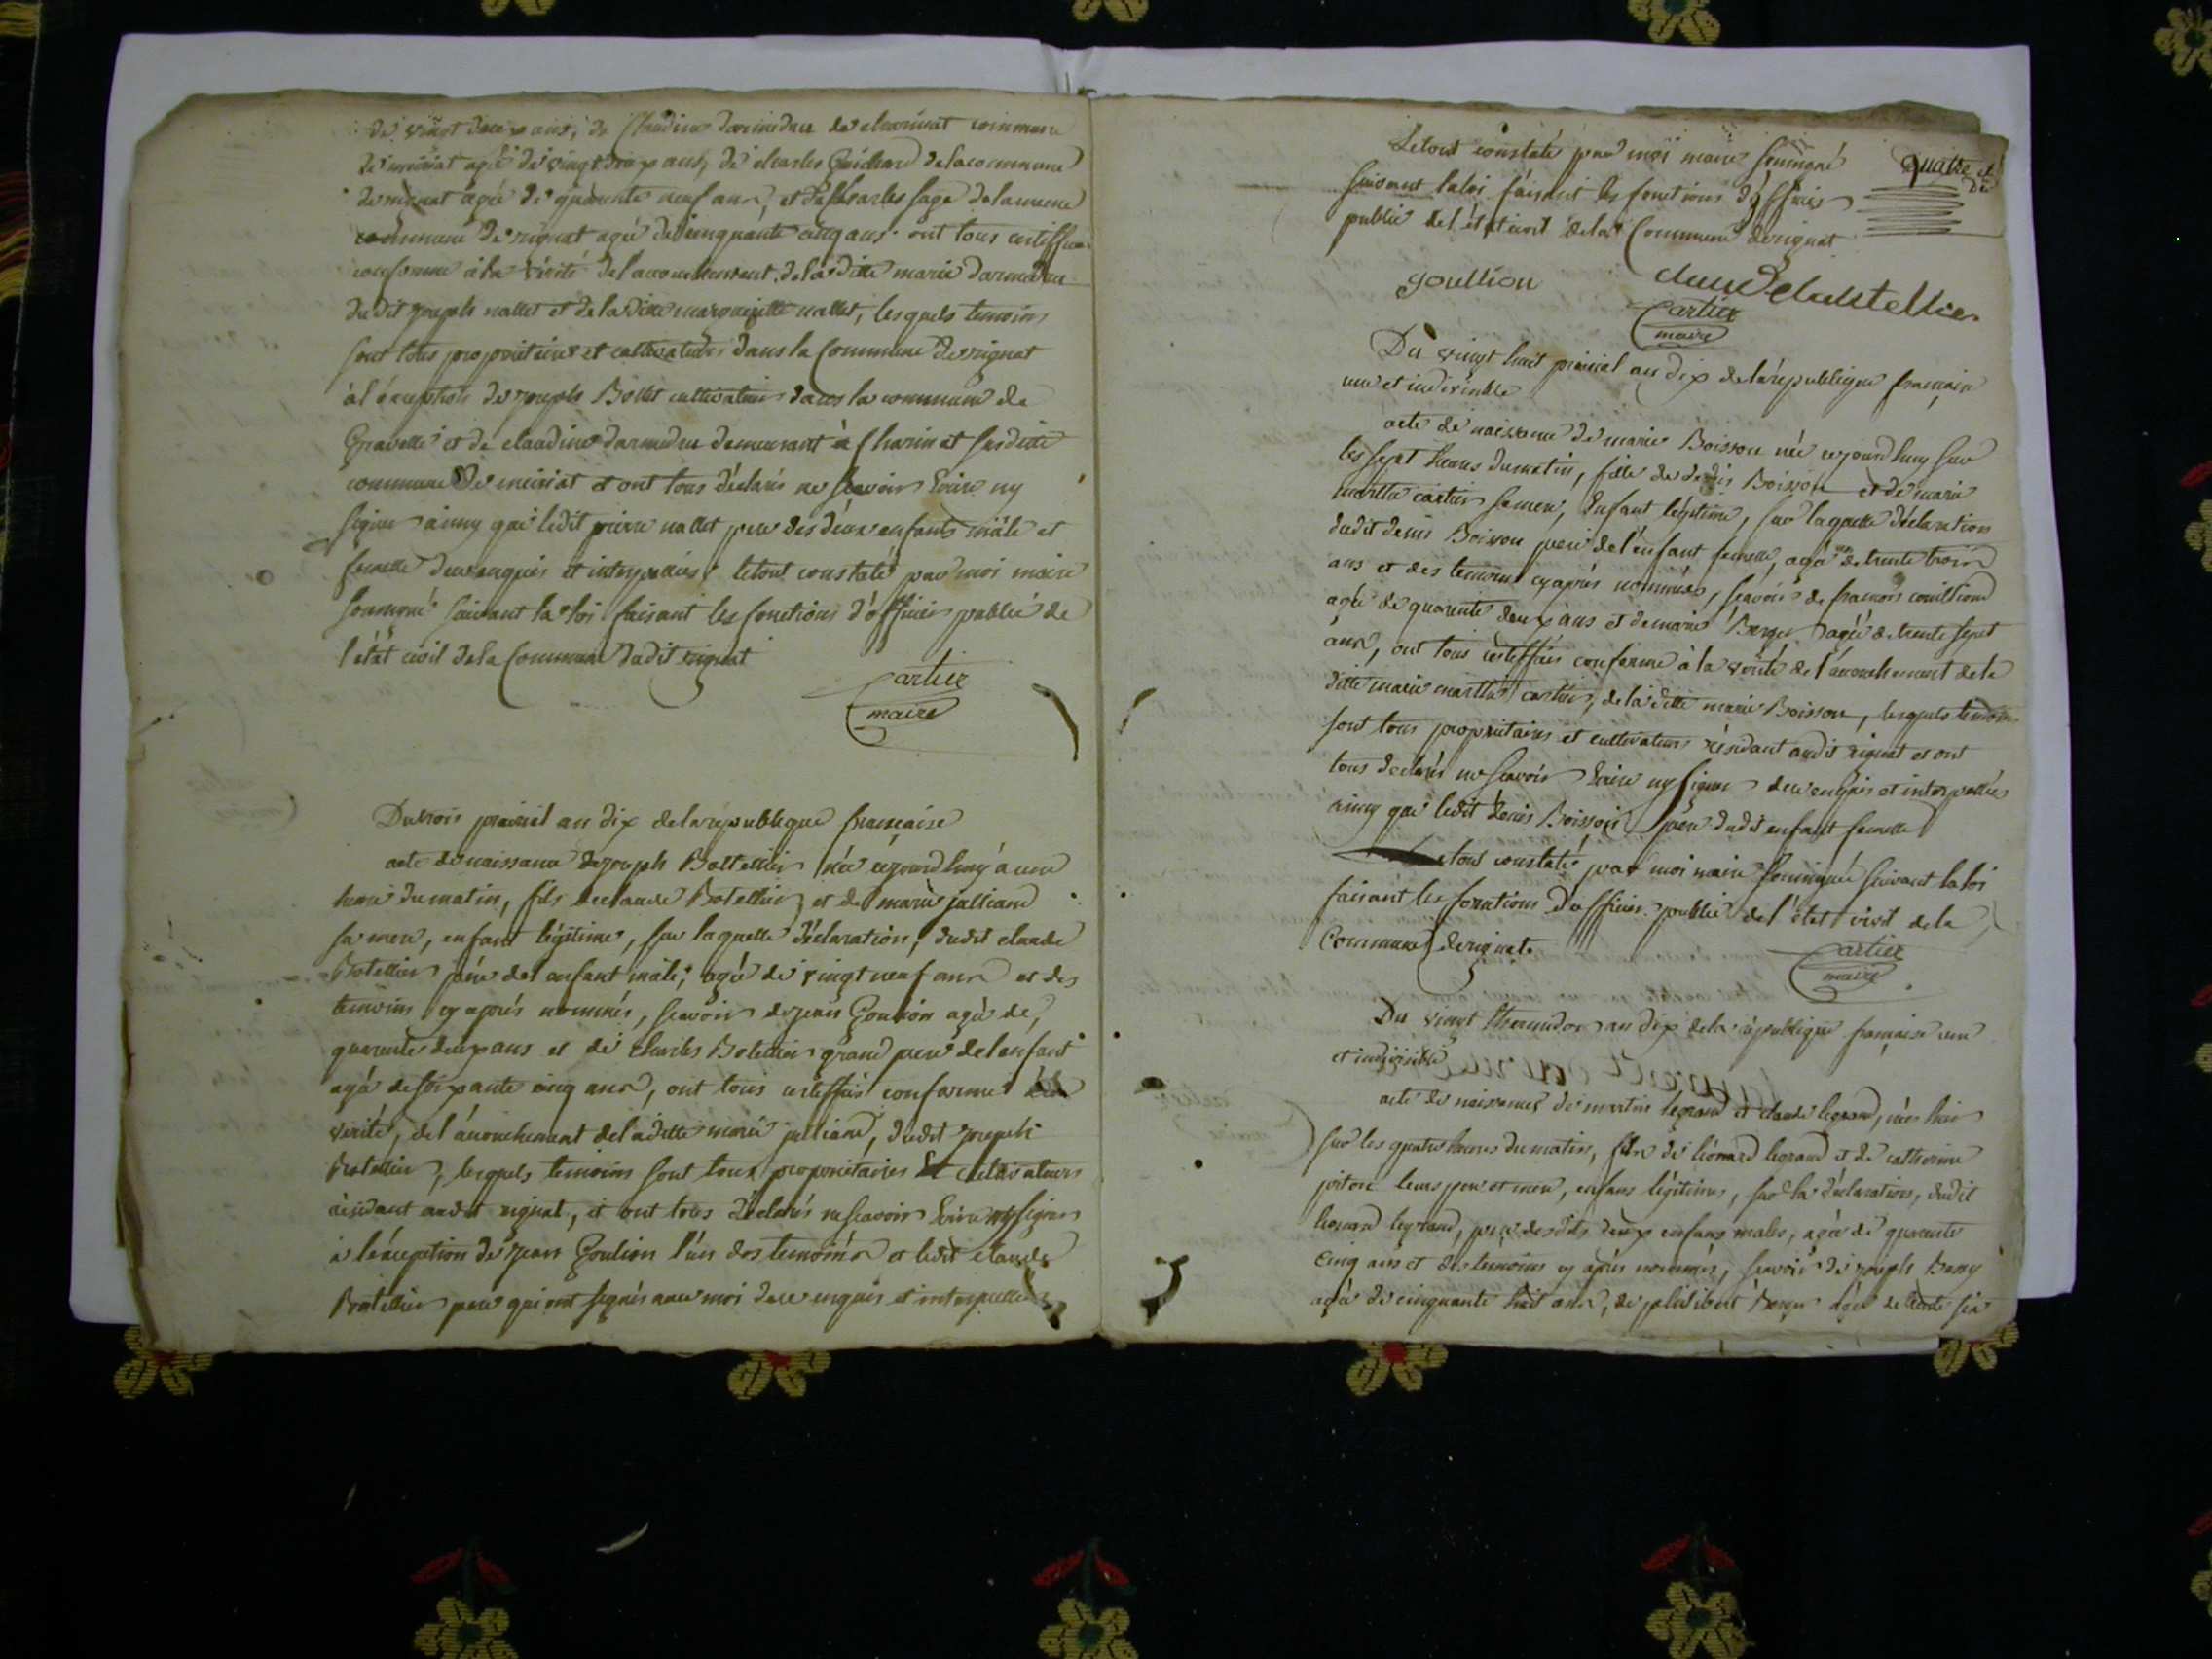 de vingt deux ans, de Claudine Darmedru de charinat commune
de meiriat agée de vingt deux ans, de charles Guichard de la commune
de rignat agée de quarente neuf ans, et de Charles sage de la meme
commune de rignat agée de cinquante cinq ans. ont tous certiffiée
conforme à la vérité de l'accouchement de la ditte marie Darmedru
dudit joseph nallet et de la ditte margueritte nallet, lesquels temoins
sont tous propriétaires et cultivateurs dans la Commune de rignat
à l'éxception de joseph Bollet cultivateur dans la commune de
Gravelle et de claudine darmedru demeurant à Charinat susditte
commune de meiriat et ont tous déclarés ne scavoir Ecrire ny
signer ainsy que ledit pierre nallet pere des deux enfants mâle et
femelle de ce enquis et interpellés. le tout constaté par moi maire
soussigné suivant la loi faisant les fonctions d'officier public de
l'état civil de la Commune dudit rignat
Cartier
maire
Du trois prairial an dix de la république francaise
acte de naissance de joseph Bottellier née cejourdhuy à une
heure du matin, fils de claude Botellier et de marie julliand
sa mere, enfant légitime, sur laquelle déclaration, dudit claude
Botellier père de l'enfant mâle, agée de vingt neuf ans et des
temoins cy après nommés, scavoir de jean Goulion agée de
quarente deux ans et de charles Botellier grand pere de l'enfant
agée de soixante cinq ans, ont tous certiffiés conforme à la
vérité, de l'accouchement de la ditte marie julliand, dudit joseph
Botellier, lesquels temoins sont tous propriétaires Et cultivateurs
résidant audit rignat, et ont tous déclarés ne scavoir Ecrire ny signer
à l'éxception de jean Goulion l'un des temoins et ledit claude
Botellier pere qui ont signés avec moi de ce enquis et interpellés
Le tout constaté par moi maire soussigné
suivant la loi faisant les fonctions d'officier
public de l'état civil de la Commune de rignat
quatre
goullion
claude bottellier
Cartier
maire
Du vingt huit prairial an dix de la république francaise
une et indivisible
acte de naissance de marie Boisson née cejourdhuy sur
les sept heures du matin, fille de denis Boisson et de marie
marthe cartier sa mere, Enfant légitime, sur laquelle déclaration
dudit denis Boisson pere de l'enfant femelle, agée de trente trois
ans et des temoins cy après nommés, scavoir de francois
agée de quarente deux ans et de marie Berger agée de trente sept
ans, ont tous certiffiés conforme à la vérité de l'accouchement de la
ditte marie marthe cartier, de la ditte marie Boisson, lesquels temoins
sont tous propriétaires et cultivateurs résidant audit rignat et ont
tous declarés ne scavoir Ecrire ny signer de ce enquis et interpellés
ainsy que ledit denis Boisson père dudit enfant femelle
le tout constaté par moi maire soussigné suivant la loi
faisant les fonctions d'officier public de l'état civil de la
Commune de rignat
Cartier
maire
Du vingt thermidor an dix de la république francaise une
et indivisible
acte de naissance de martin legrand et claude legrand, nées hier
sur les quatre heures du matin, fils de léonard legrand et de catherine
leurs pere et mere, enfans légitimes, sur la déclaration, dudit
léonard legrand, pere desdits deux enfans males, agée de quarente
cinq ans et des temoins cy après nommés, scavoir de joseph
agée de cinquante huit ans, de philibert Berger agée de trente six